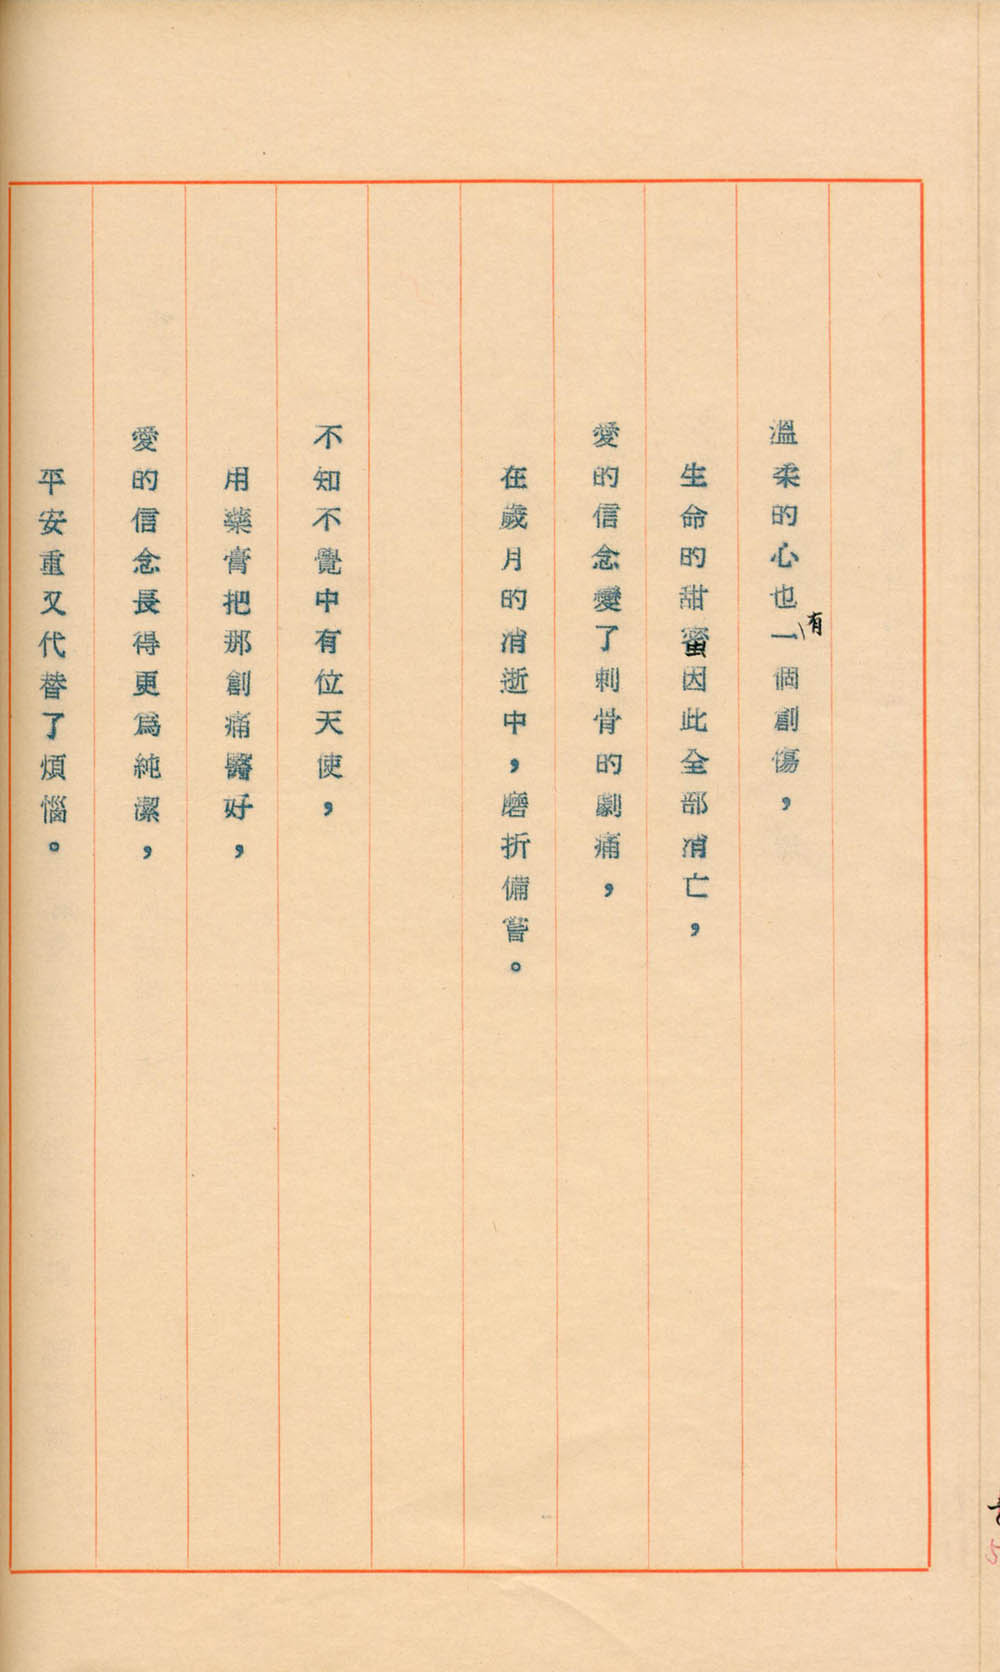 溫柔的心也有一個創傷，
生命的甜蜜因此全部消亡，
愛的信念變了刺骨的劇痛，
在歲月的消逝中，磨折備嘗。
不知不覺中有位天使，
用藥膏把那創痛醫好，
愛的信念長得更爲純潔，
平安重又代替了煩惱。